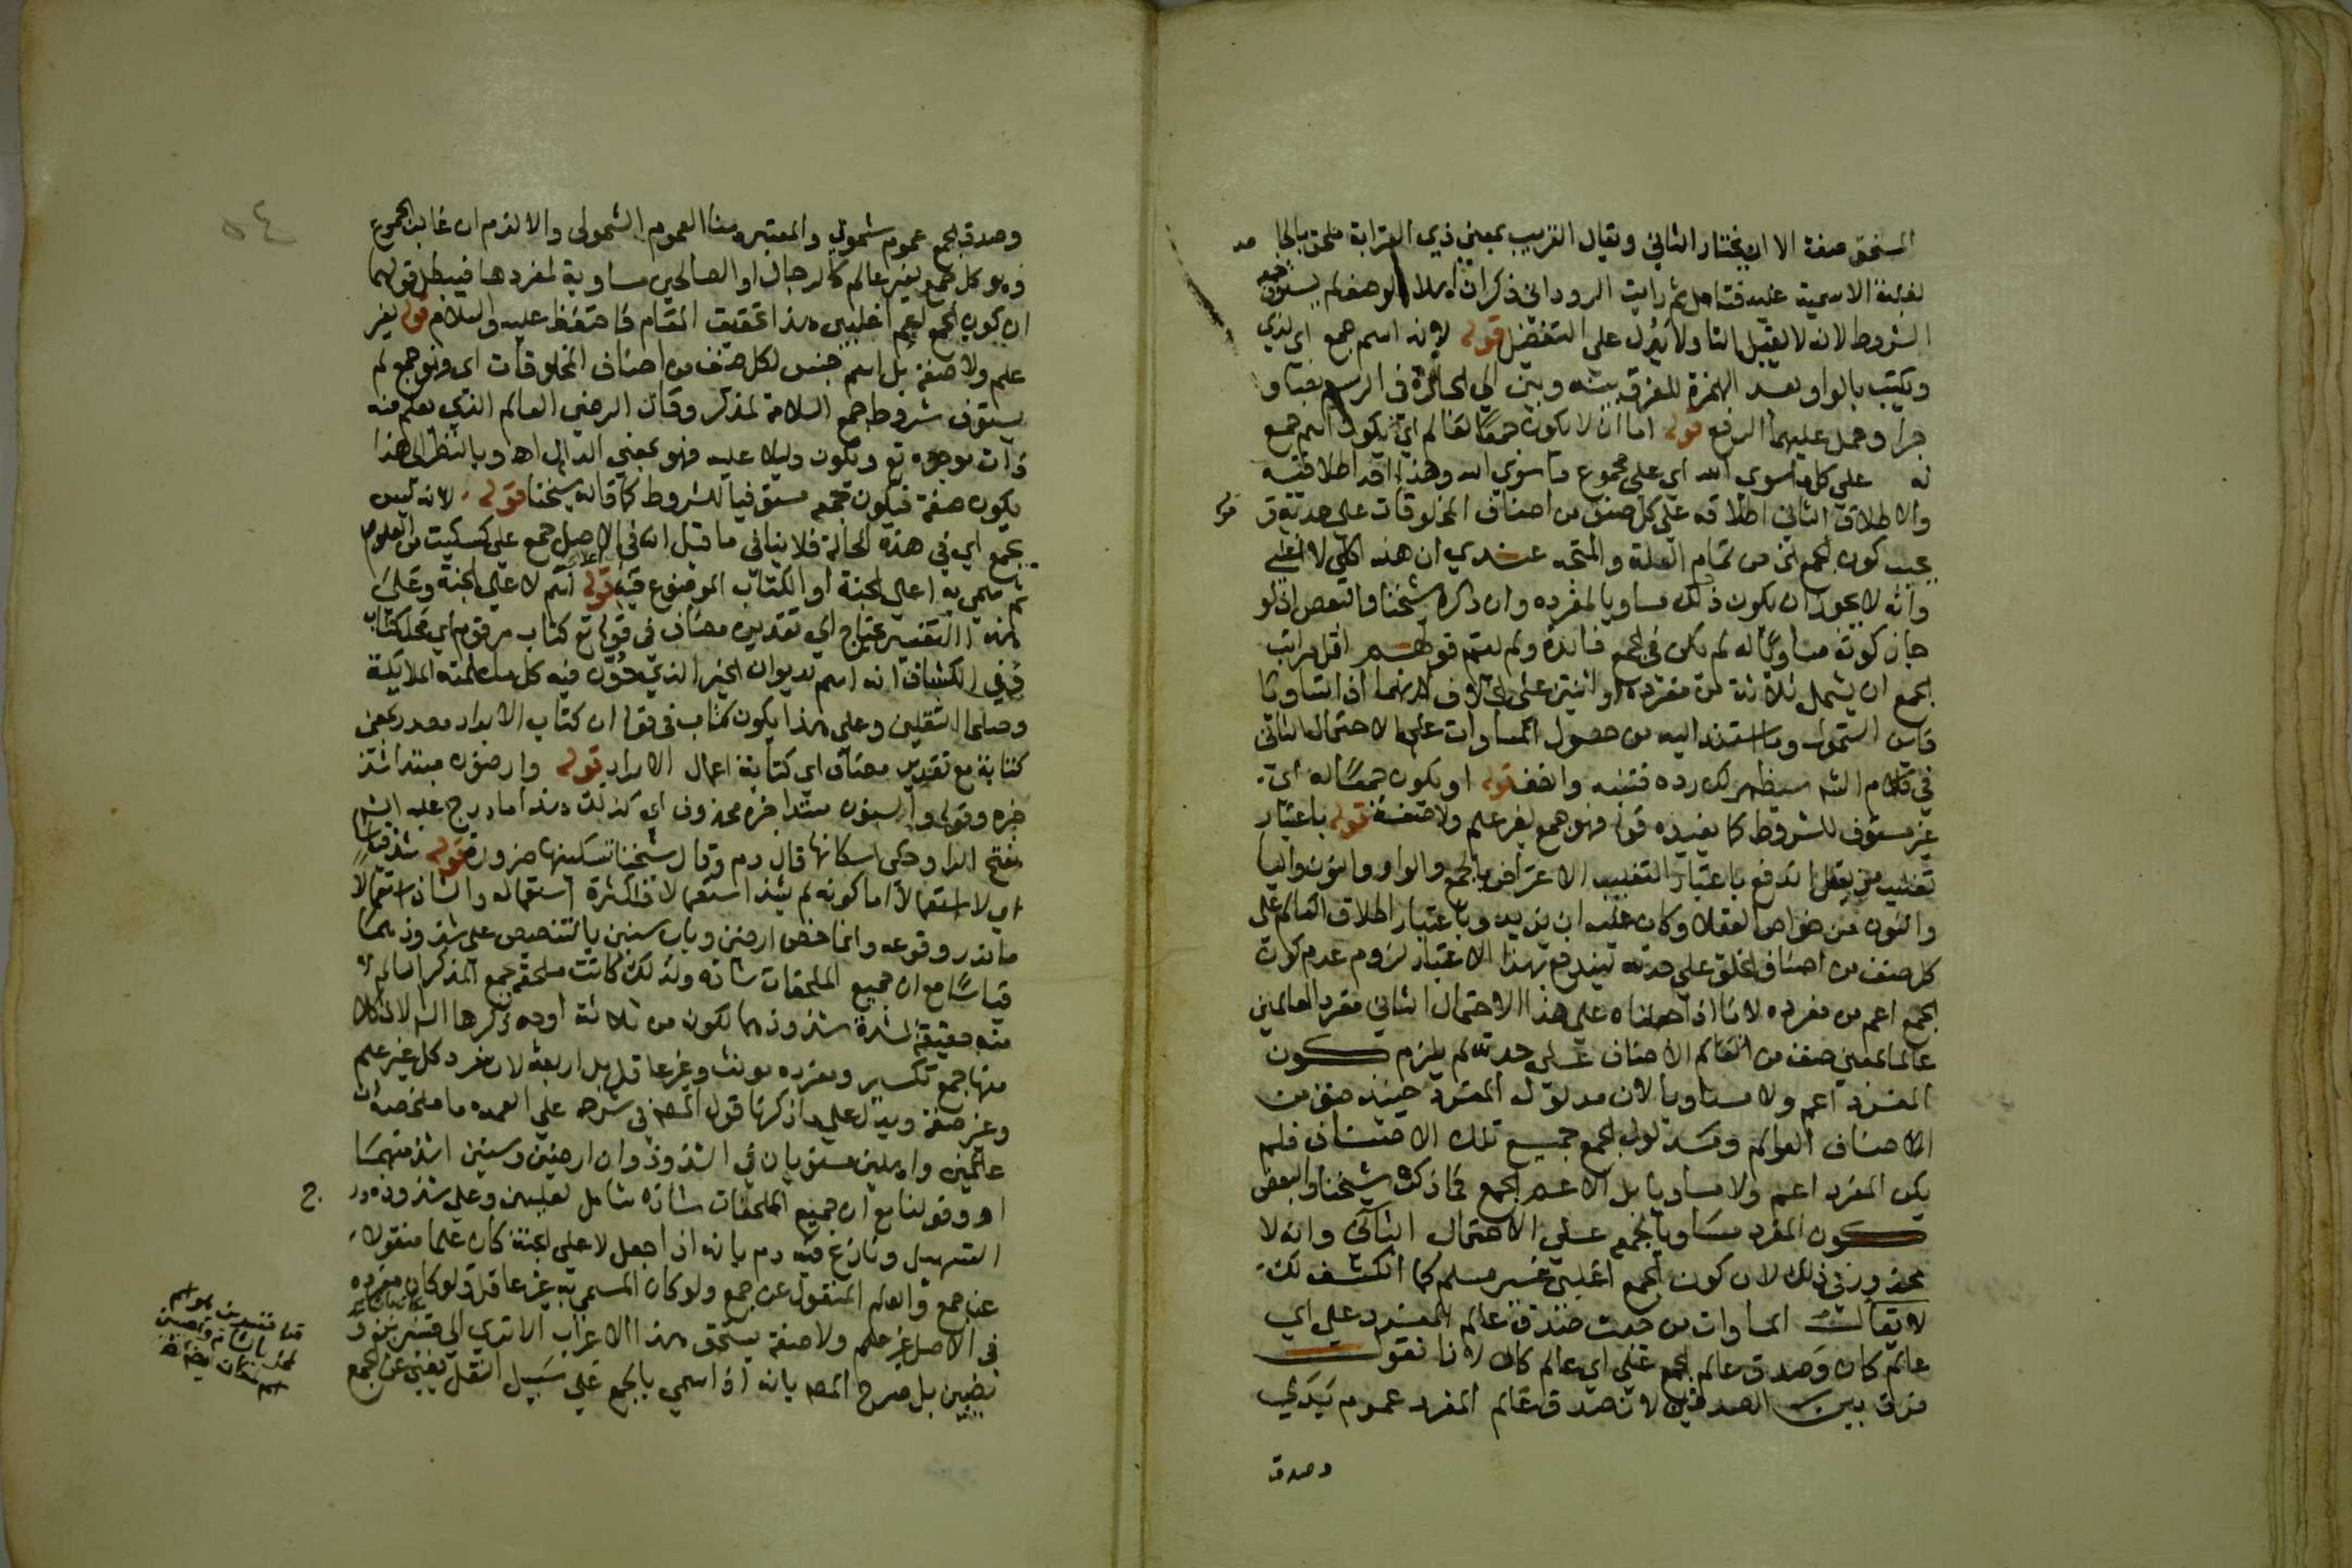 المستحق صفة الا ان يختار الثاني ويقال القريب بمعني ذي القرابة ملحق بالجا مد
لغلبة الاسمية عليه فتامل ثم رايت الروداني ذكر ان اهلا الوصف لم يستوف جمعه
الشروط لانه لا يقبل التا ولا يدل على التفضيل قوله لانه اسم جمع اي لذي
ويكتب بالواو بعد الهمزة للفرق بينه وبين الي الجارة في الرسم نصبا و
جرا وحمل عليهما الرفع قوله اما ان لا يكون جمعا لعالم اي يكون اسم جمع
له على كل ما سوي الله اي على مجموع ما سوي الله وهذا احد اطلاقته
والاطلاق الثاني اطلاقه على كل صنف من اصناف المخلوقات على حدته قوله
يجب كون الجمع الخ من تمام العلة والمتجه عندي ان هذه كلي لا اغلبي
وانه لا يجوز ان يكون ذلك مساويا لمفرده وان ذكره شيخنا والبعض اذ لو
جاز كونه مساويا له لم يكن في الجمع فائدة ولم يتم قولهم اقل مراتب
الجمع ان يشمل ثلاثة من مفرده او اثنين على الخلاف لانهما اذا تساويا
فاين الشمول وما استند اليه من حصول المساوات على الاحتمال الثاني
في كلام الشم سيظهر لك رده فتنبه وانصف قوله او يكون جمعا له اي
غير مستوف للشروط كما يفيده قوله فهو جمع لغير علم ولا صفة قوله باعتبار
تغليب من يعقل اندفع باعتبار التغليب الاعتراض بالجمع والواو والنون واليا
والنون من خواص العقلا وكان عليه ان يزيد وباعتبار اطلاق العالم على
كل صنف من اصناف الخلق على حدته ليندفع بهذا الاعتبار لزوم عدم كون
الجمع اعم من مفرده لانا اذا حملناه على هذا الاحتمال الثاني مفرد العالمين
عالما بمعني صنف من العالم الاصناف على حدته لم يلزم كون
المفرد اعم ولا مساويا لان مدلول المفرد حينئذ صنف من
الاصناف العوالم ومدلول الجمع جميع تلك الاصناف فلم
يكن المفرد اعم ولا مساويا بل الاعم الجمع فما ذكره شيخنا والبعض
كون المفرد مساويا لجمعه على الاحتمال الثاني وانه لا
محذور في ذلك لان كون الجمع اغلبي غير مسلم كما انكشف لك
لا يقال المساوات من حيث صدق عالم المفرد على اي
عالم كان وصدق عالم الجمع على اي عالم كان لانا نقول
فرق بين الصدقين لان صدق عالم المفرد عموم بدلي
وصدق
٥٤
وصدق الجمع عموم شمولي والمعتبر هنا العموم الشمولي والا لزم ان غالب الجموع
وهو كل جمع لغير عالم كالرجال او الصالحين مساوية لمفردها فيبطل قولهما
ان كون الجمع اعم اغلبي هذا تحقيق المقام فاحتفظ عليه والسلام قوله لغير
علم ولا صفة بل اسم جنس لكل صنف من اصناف المخلوقات اي وهو جمع لم
يستوف شروط جمع السلامة لمذكر وقال الرضي العالم الذي يعلم منه
ذات موجده تع ويكون دليلا عليه فهو بمعني الدال اه وبالنظر الى هذا
يكون صفة فيكون جمعه مستوفيا للشروط كما قاله شيخنا قوله لانه ليس
بجمع اي في هذه الحالة فلا ينافي ما قيل انه في الاصل جمع علي كسكيت من العلو
ثم سمي به اعالي الجنة او الكتاب الموضوع فيه قوله اسم لاعلي الجنة وعلى
هذا التفسير يحتاج الى تقدير مضاف في قوله تع كتاب مرقوم اي محل كتاب
وفي الكشاف انه اسم لديوان الخير الذي دون فيه كل ما عملته الملايكة
وصلحا الثقلين وعلى هذا يكون كتاب في قوله ان كتاب الابرار مصدر بمعني
كتابة مع تقدير مضاف اي كتابة اعمال الابرار قوله وارضون مبتدا شذ
خبره وقوله والسنون مبتدا خبره محذوف اي كذلك هذا ما درج عليه الشم
بفتح الرا وحكى اسكانها قال دم وقال شيخنا تسكينها ضرورة قوله شذ قياسا
اي لا استعمالا اما كونه لم يشذ استعمالا فلكثرة استعماله والشاذ استعمالا
ما ندر وقوعه وانما خص ارضين وباب سنين بالتنصيص على شذوذهما
قياسا مع ان جميع الملحقات شاذه ولذلك كانت ملحقة بجمع المذكر السالم لا
منه حقيقة لشدة شذوذهما لكون من ثلاثة اوجه ذكرها الشم لان كلا
منها جمع تكسير ومفرده مونث وغير عاقل بل اربعة لان مفرد كل غير علم
وغير صفة ويدل على ما ذكرنا قول المصم في شرحه على العمده ما ملخصه ان
عالمين واهلين مستويان في الشذوذ وان ارضين وسنين اشذ منهما
اه وقولنا مع ان جميع الملحقات شاذه شامل لعليين وعلى شذوذه در ج
التسهيل ونازع فيه دم بانه اذا جعل لاعلى الجنة كان علما منقولا
عن جمع والعلم المنقول عن جمع ولو كان المسمى به غير عاقل ولو كان مفرده
في الاصل غير علم ولا صفة يستحق هذا الاعراب الا تري الى قنسرين و
نصيبين بل صرح المصم بانه اذا سمي بالجمع على سبيل النقل يعني عن الجمع